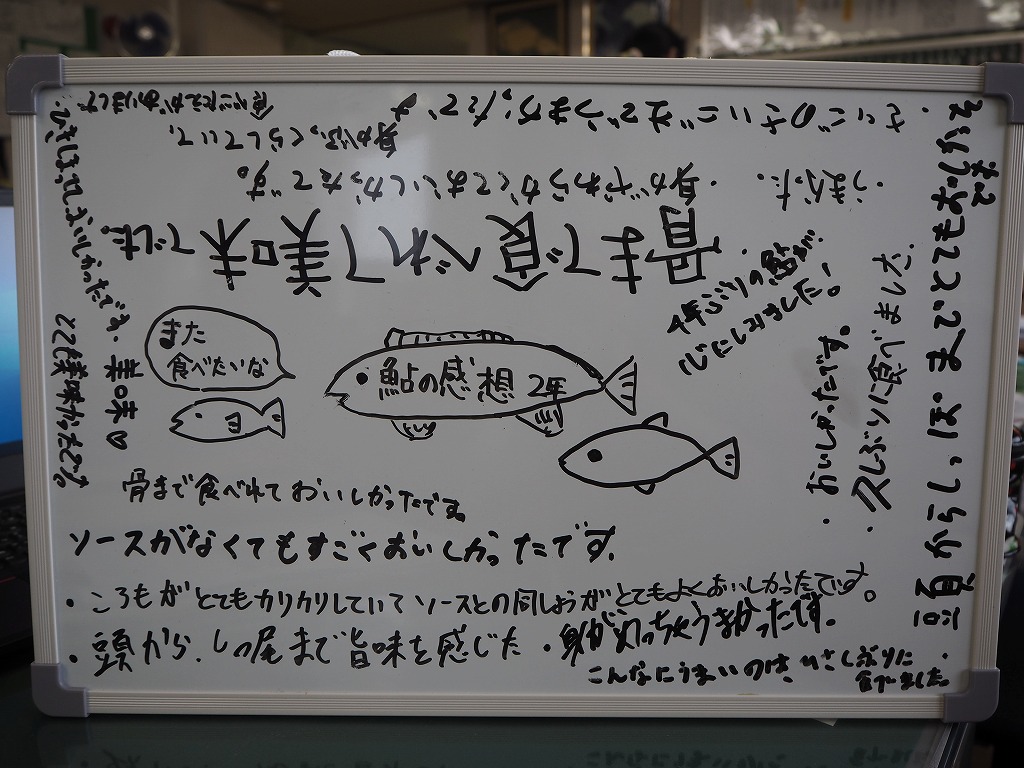 鮎の感想 2年
また
食べたいな
骨まで食べれて美味でした。
4年ぶりの鮎が
心にしみました!
骨まで食べれておいしかったです。
ソースがなくてもすごくおいしかったです。
・ころもがとてもカリカリしていてソースとの同しょうがとてもよくおいしかったです。
・頭から、しっ尾まで旨味を感じた
・身がめっちゃうまかったです。
こんなにうまいのは、ひさしぶりに
食べました。
・頭からしっぽまでとてもおいしかった
です
・久しぶりに食べました。
・おいしかったです。
・さいごのさいごまでうまかったです
・うまかった。
・身がやわらかくておいしかったです。
身がふっくらしていて、
食べごたえがありました
おいしかったです。美味♡
とても美味かったです。